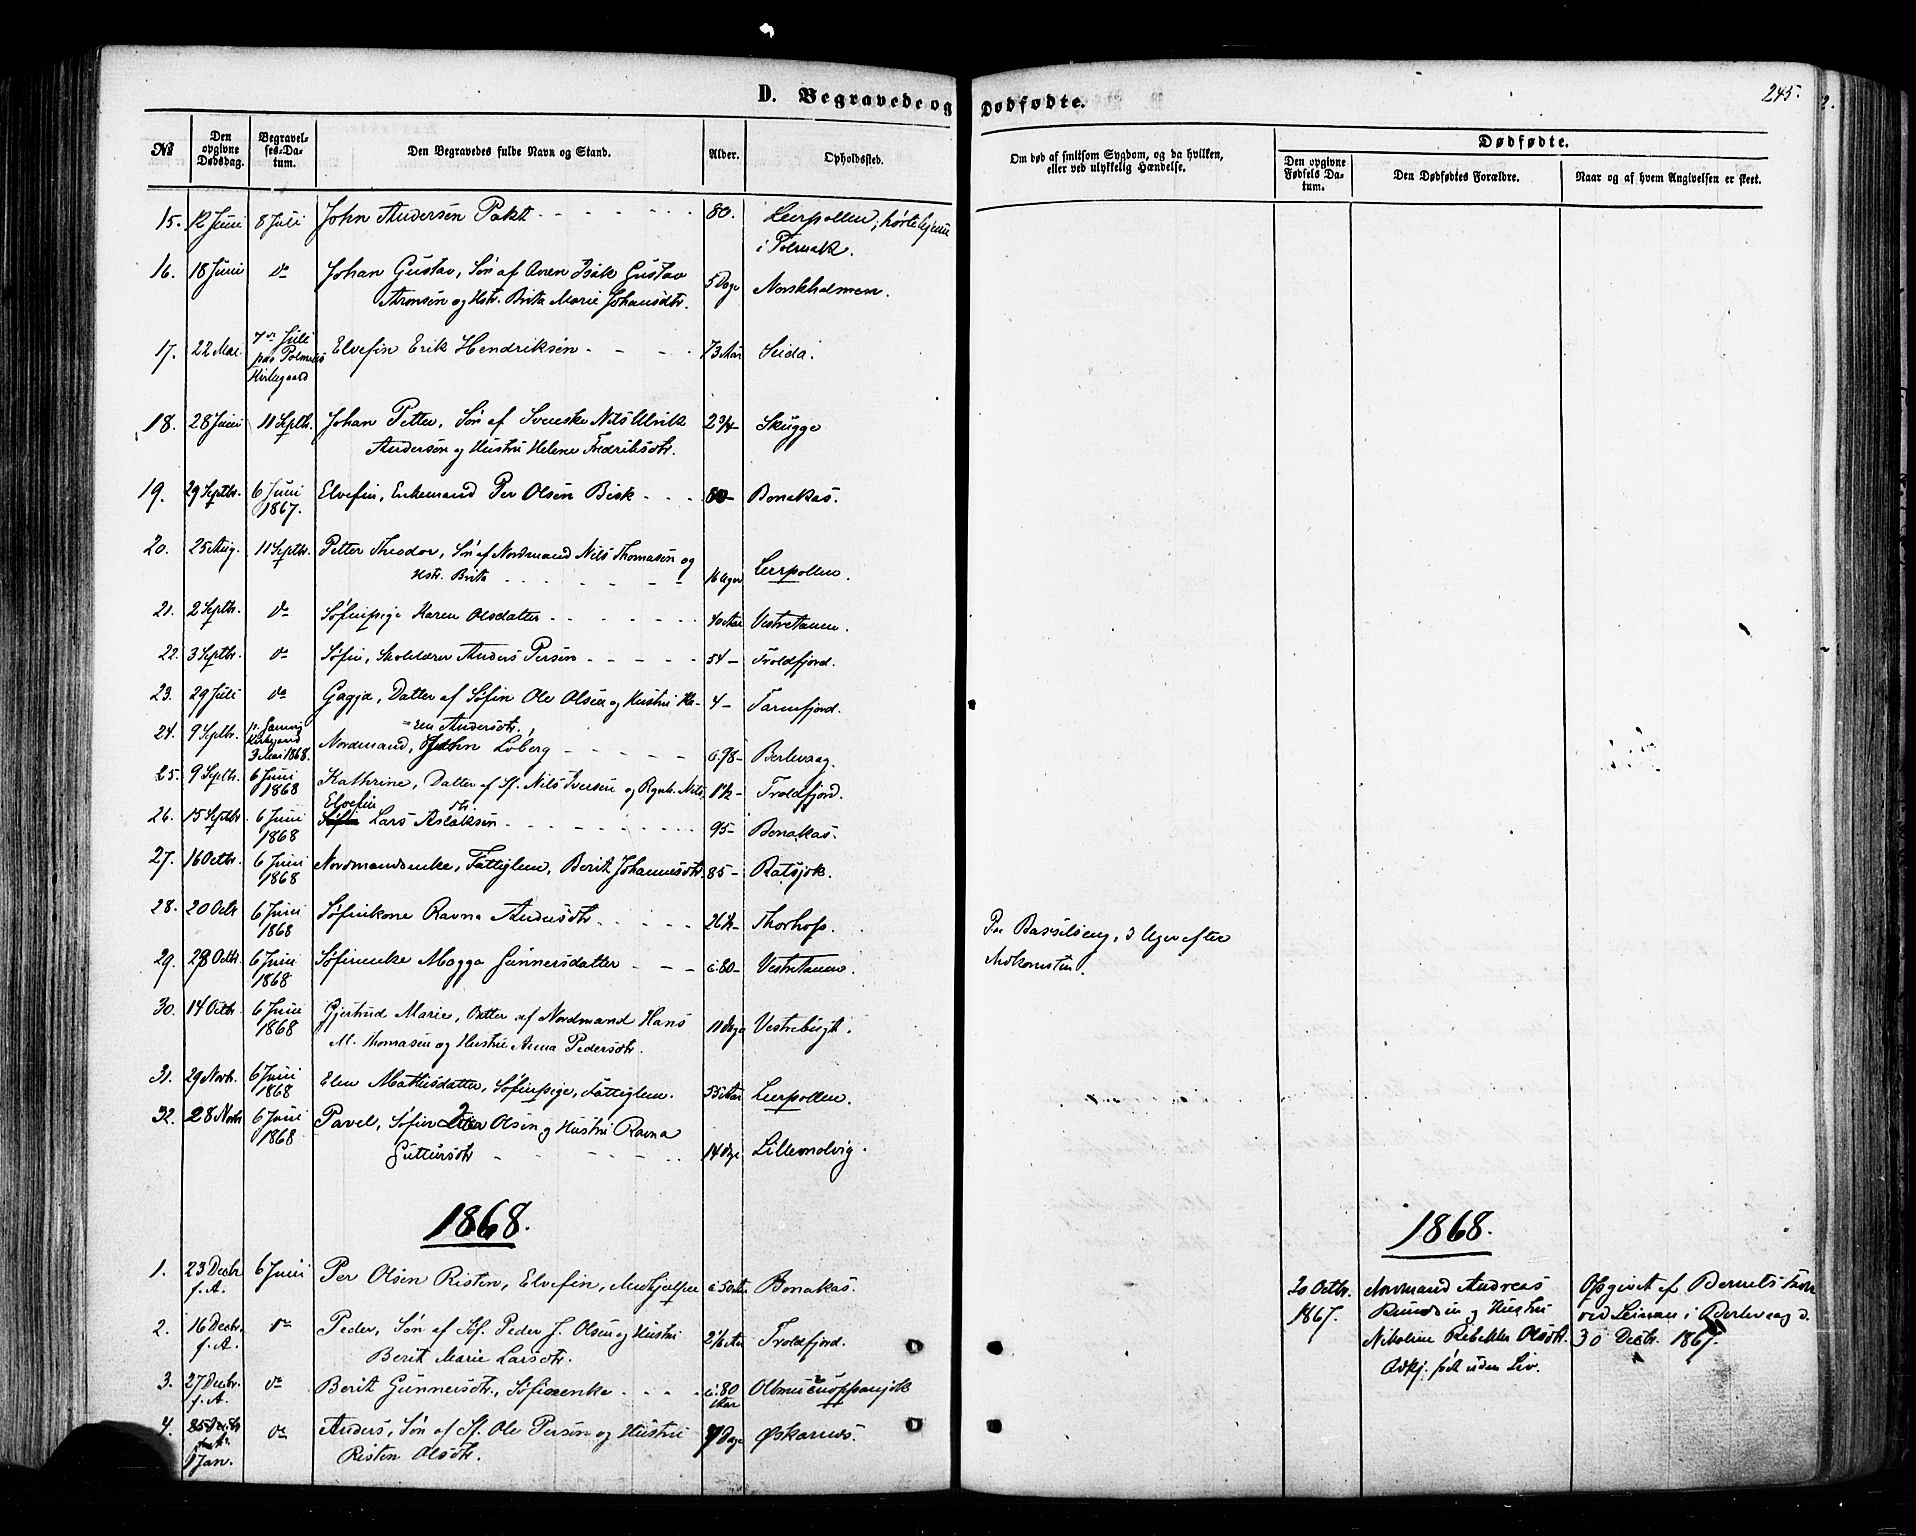 D. Begravede og Dødfødte.
245.
№
Den opgivne Dødsdag.
Begravelses-Datum.
Den Begravedes fulde Navn og Stand.
Alder.
Opholdssted.
Om død af smitsom Sygdom, og da hvilken, eller ved ulykkelig Hændelse.
Dødfødte.
Den opgivne Fødsels Datum.
Den Dødfødtes Forældre.
Naar og af hvem Angivelsen er skeet.
15. 12 Juni 8 Juli John Andersen Pakt 80. Leerpollen; hørte hjem
i Polmak.
16. 18 Juni do Johan Gustav, Søn af Qven Isak Gustav 5 Dage Norskholmen.
Aronsen og Hstr. Brita Marie Johansdtr.
17. 22 Mai 7de Juli paa Polmaks Kirkegaard Elvefin Erik Hendriksen 73 Aar Seida.
18. 28 Juni 11 Septbr. Johan Petter, Søn af Svenske Nils Ulrik 2 3/4 Skugge
Andersen og Hustru Helene Fredriksdtr.
19. 29 Septbr. 6 Juni 1867. Elvefin, Enkemand Per Olsen Bisk 80 Bonakas.
20. 25 Aug. 11 Septbr. Petter Theodor, Søn af Nordmand Nils Thomasen og
Hstr. Brita 16 Uger Leerpollen.
21. 2 Septbr. do Søfinpige Karen Olsdatter 40 Aar Vestretanen.
22. 3 Septbr. do Søfin, Skolelærer Anders Persen 54 Troldfjord.
23. 29 Juli do Gagja, Datter af Søfin Ole Olsen og Hustru Ka-
=ren Andersdtr. 4 Tarmfjord.
24. 9 Septbr. Kirkegaard 3 Mai 1868. Nordmand, John Loberg c. 78 Berlevaag.
25. 9 Septbr. 6 Juni 1868 Kathrine, Datter af Sf. Nils Iversen og Ragnh. Nils
dtr. 1 1/2 Troldfjord.
26. 15 Septbr. 6 Juni 1868 Elvefin Lars Aslaksen 95 Bonakas.
27. 16 Octbr. 6 Juni 1868 Nordmandsenke, Fattiglem, Berit Johannesdtr. 85 Ratsjok.
28. 20 Octbr 6 Juni 1868 Søfinkone Ravna Andersdtr. 26 1/2 Thorhop. Paa Barselseng, 3 Uger efter
Nedkomsten.
29. 28 Octbr. 6 Juni 1868 Søfinenke Magga Gunnersdatter c. 80 Vestretanen.
30. 14 Octbr. 6 Juni 1868 Gjertrud Marie, Datter af Nordmand Hans
M. Thomasen og Hustru Anna Pedersdtr. 11 Dage Vestrebugt.
31. 29 Novbr. 6 Juni 1868 Elen Mathisdatter, Søfinpige, Fattiglem. 55 Aar Leerpollen.
32. 28 Novbr 6 Juni 1868 Pavel, Søfin Olsen og Hustru Ravna
Guttursdtr 14 Dage Lillemolvig.
1868.
1868.
1. 23 Decbr f. A. 6 Juni Per Olsen Risten, Elvefin, Medhjelper c. 50 Aar Bonakas.
2. 16 Decbr. f. A. do Peder, Søn af Sf. Peder J. Olsen og Hustru
Berit Marie Larsdtr. 2 1/2 Aar Troldfjord.
3. 27 Decbr. f. A. do Berit Gunnersdtr., Søfinenke c. 80 Aar
4. 1 Jan. do Anders, Søn af Sf. Ole Persen og Hustru
Risten Olsdtr. 7 Dage Øskarnes.
20 Octbr. 1867. Nordmand Andreas
Knudsen og Hustru
Nikoline Rebekka Olsdtr.
Udkj. født uden Liv.
Opgivet af
ved i Berlevaag d.
30 Decbr. 1867.